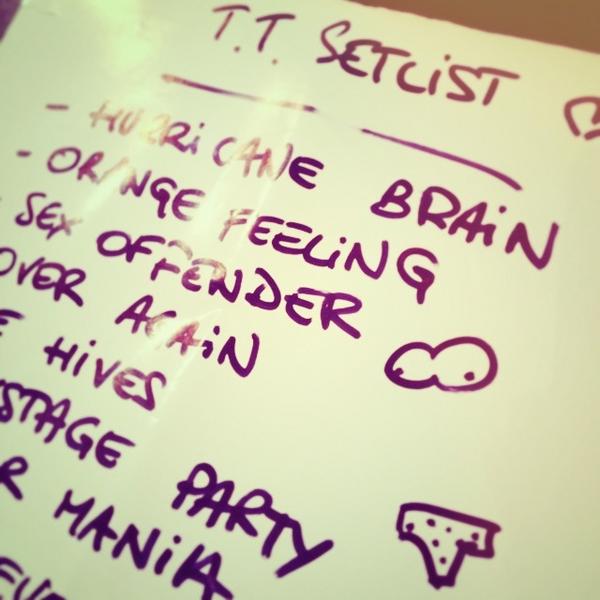 T.T. SETLiST
- HURRiCANE BRAiN
- ORANGE FEELiNG
- SEX OFFENDER
OVER AGAiN
E HiVES
STAGE PARTY
R MANiA